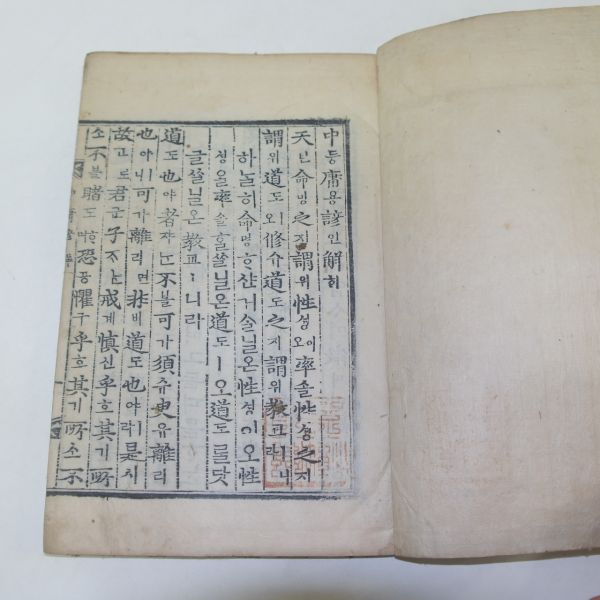 中듕庸용諺언解ᄒᆡ
天텬命명之지謂위性셩이오率솔性셩之지
謂위道도ㅣ오修슈道도之지謂위敎교ㅣ니라
하ᄂᆞᆯ히命명ᄒᆞ샨거슬닐온性셩이오性
셩을率솔ᄒᆞᆯᄉᆞᆯ닐온道도ㅣ오道도ᄅᆞᆯ닷
글ᄉᆞᆯ닐온敎교ㅣ니라
道도也야者쟈ᄂᆞᆫ不블可가須슈臾유離리
也야ㅣ니可가離리면非비道도也야ㅣ라是시
故고로君군子ᄌᆞᄂᆞᆫ戒계愼신乎호其기所
소不블睹도ᄒᆞ며恐공懼구乎호其기所소不